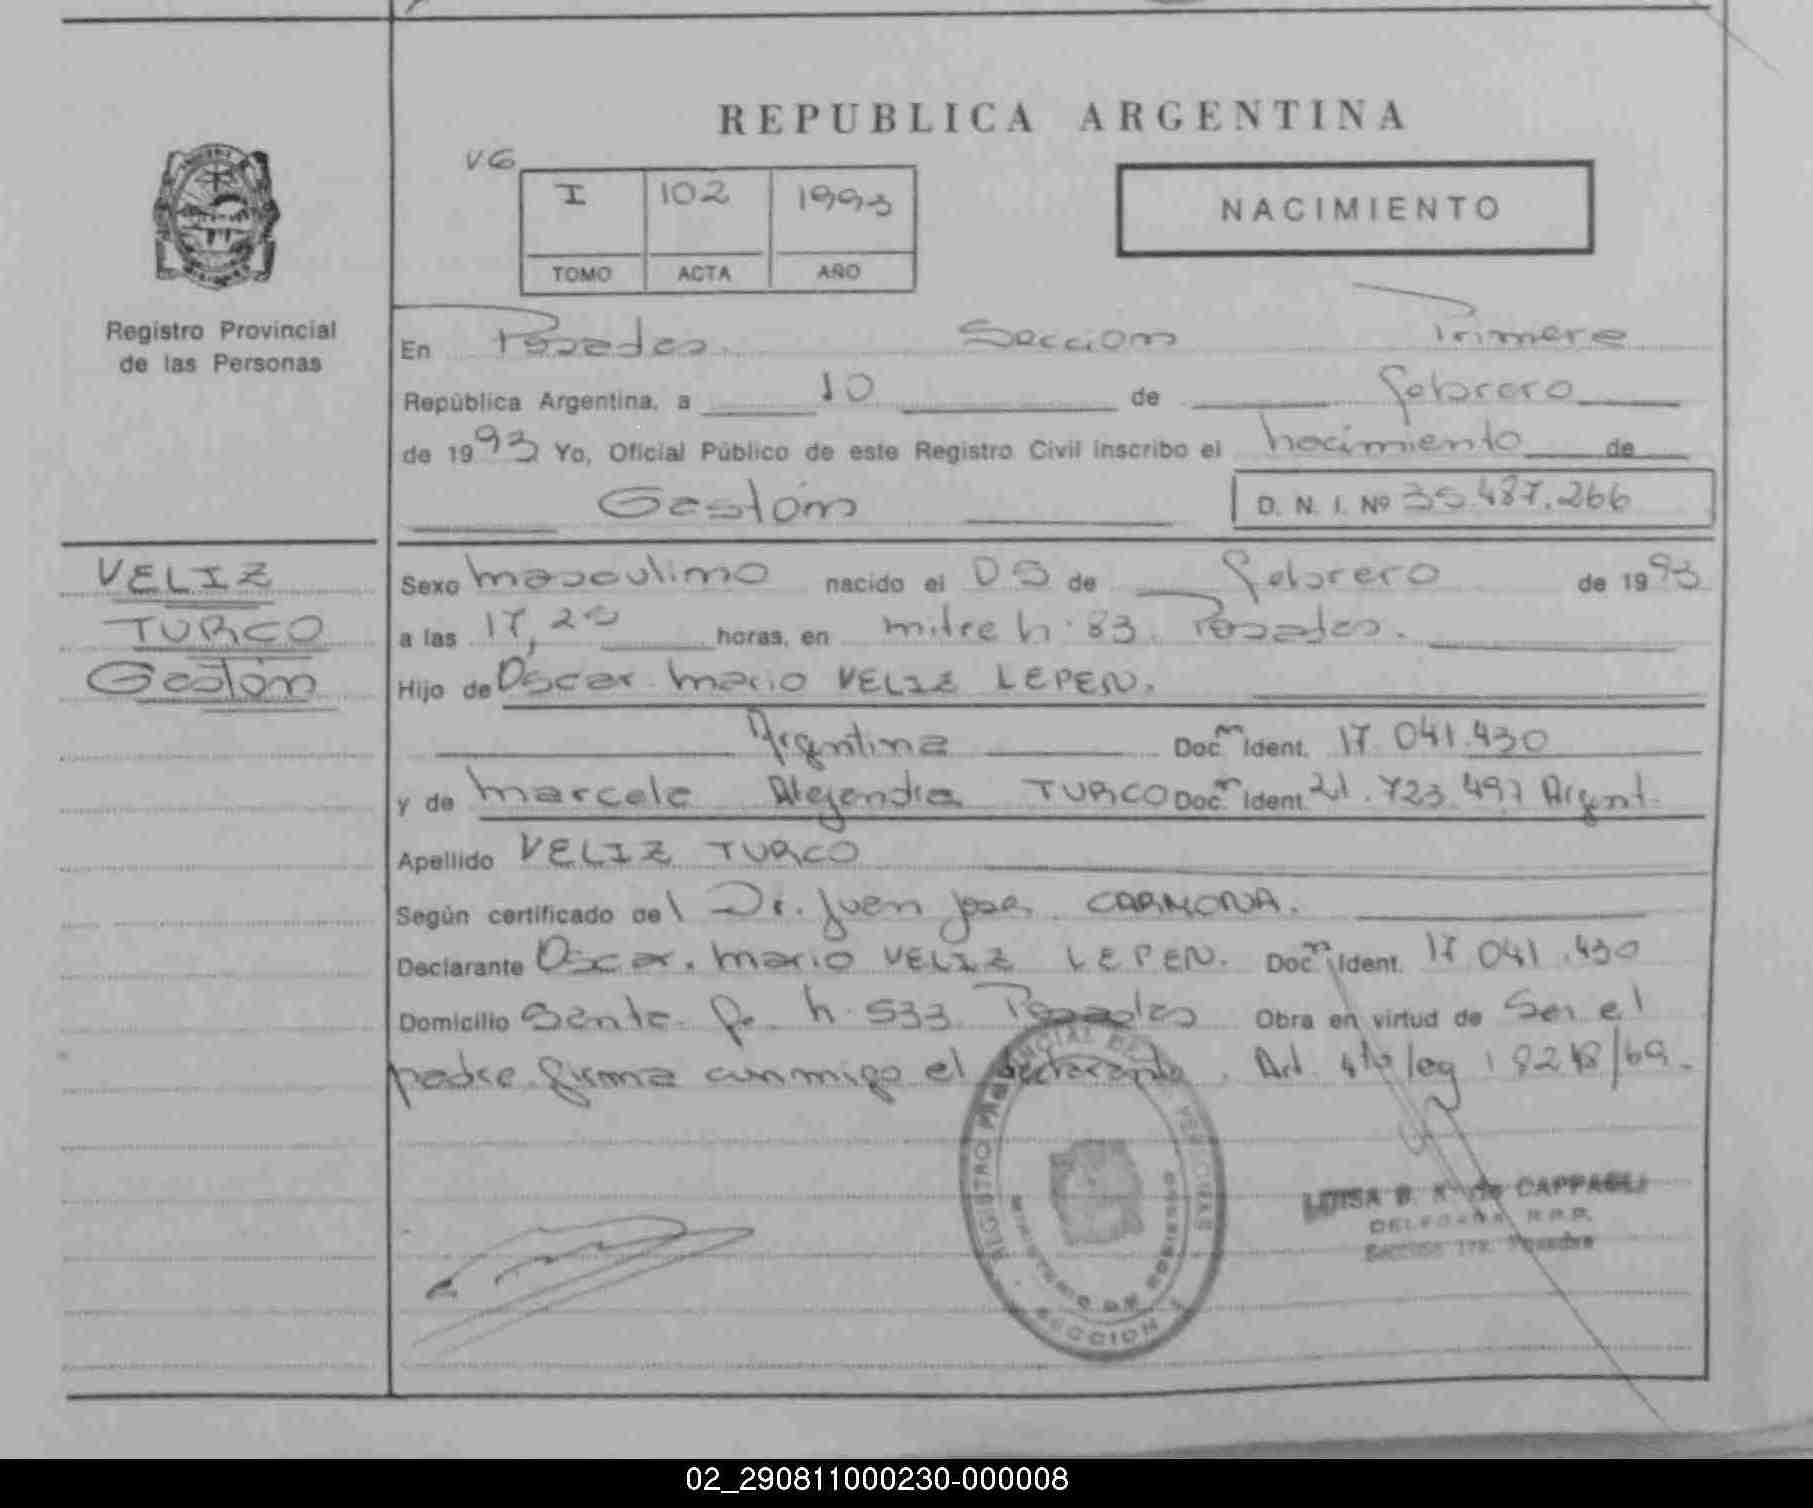 REPUBLICA ARGENTINA
VG
I 102 1993
TOMO ACTA AÑO
NACIMIENTO
Registro Provincial
de las Personas
En Posadas. Seccion Primera
República Argentina, a 10 de febrero
de 1993 Yo, Oficial Público de este Registro Civil inscribo el nacimiento de
Gastón D. N. I. Nº 35.487.266
VELIZ
TURCO
Gastón
Sexo masculino nacido el 05 de febrero de 1993
a las 17,25 horas, en mitre n. 83. Posadas.
Hijo de Oscar mario VELIZ LEPEN.
Argentina Doc. Ident. 17.041.430
y de marcela Alejandra TURCO Doc. Ident. 21.723.497 Argent.
Apellido VELIZ TURCO
Según certificado del Dr. Juan José CARMONA.
Declarante Oscar. mario VELIZ LEPEN. Doc. Ident. 17 041.430
Domicilio Santa fe n. 533 Posadas Obra en virtud de Ser el
padre firma conmigo el declarante. Art. 4to ley 18248/69.-
REGISTRO PROVINCIAL DE LAS PERSONAS
MINISTERIO DE GOBIERNO
SECCION 1
LUISA B. K. de CAPPAGLI
DELEGADA R.P.P.
Sección 1ra. Posadas
02_290811000230-000008